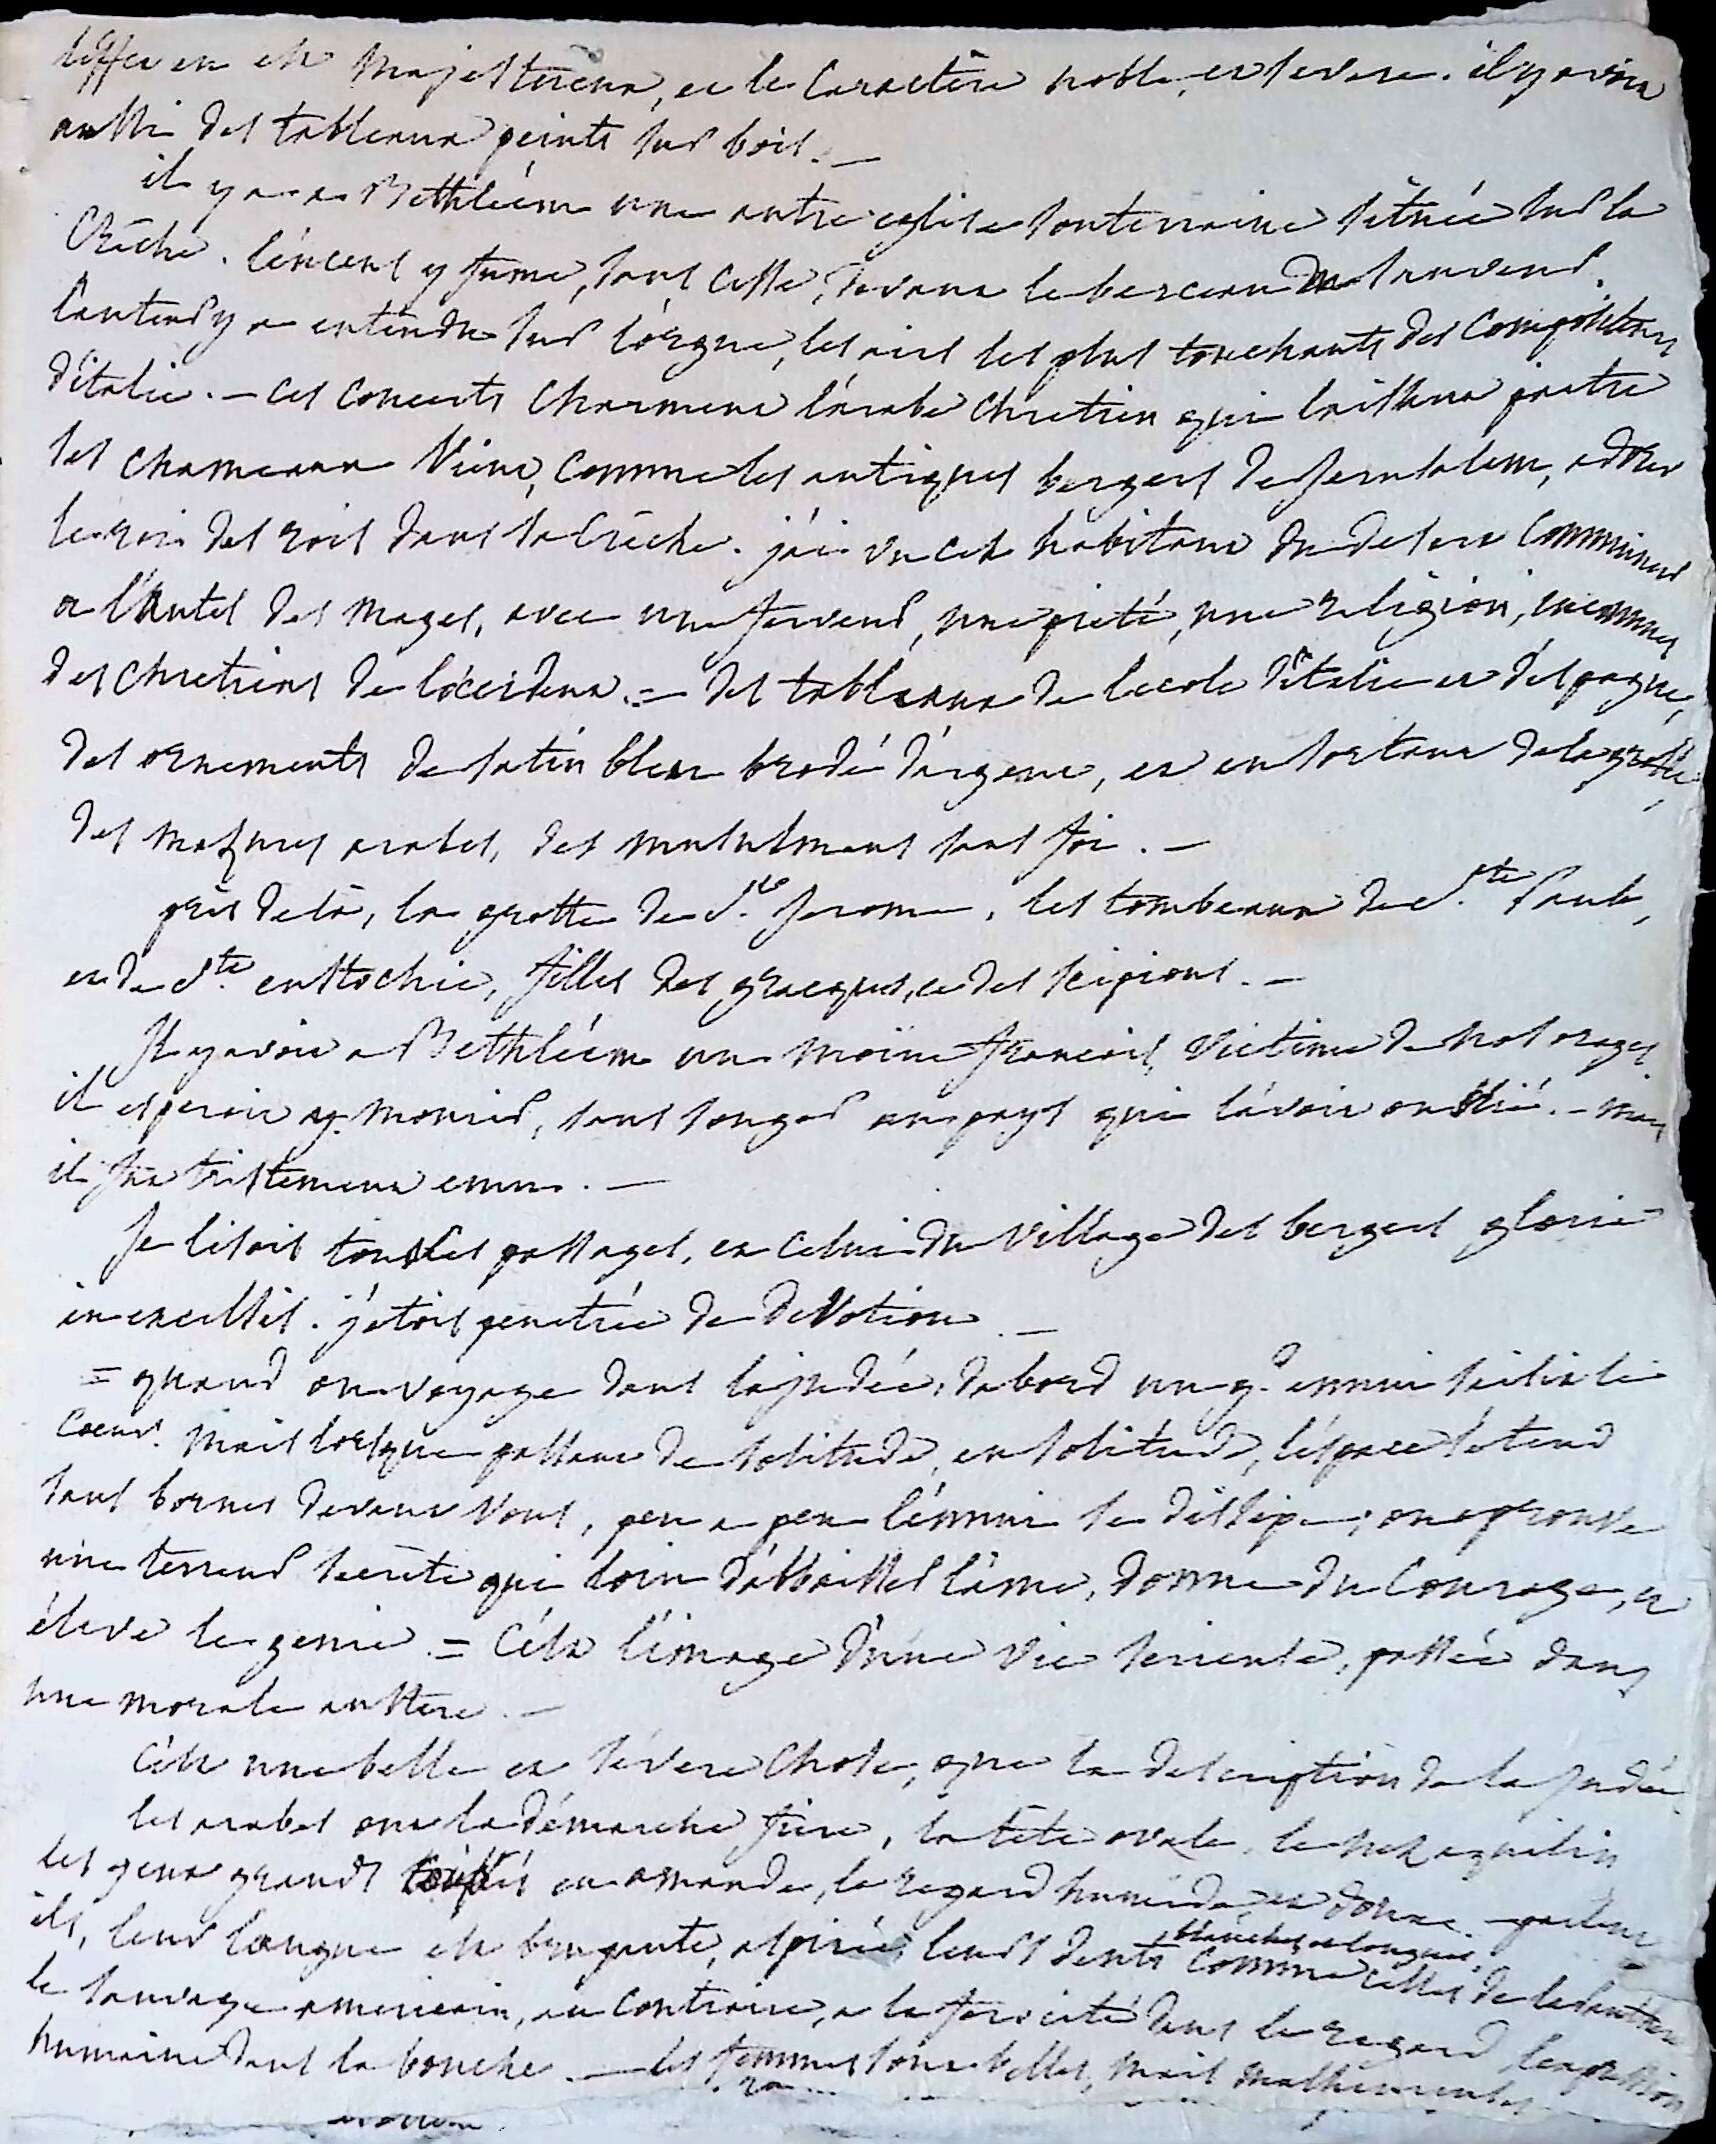 different est majestueux, et le caractère noble, et severe. il y avoit
aussi des tableaux peints sur bois. —
il y a a Bethléem une autre eglise souterraine située sur la
Crêche. l'encens y fume, sans cesse, devant le berceau du sauveur.
l'auteur y a entendu sur l'orgue, les airs les plus touchants des compositeurs
d'italie. — ces concerts charment l'arabe chretien qui laissant paitre
ses chameaux vient, comme les antiques bergers de Jerusalem, adorer
le roi des rois dans sa Crêche. j'ai vu cet habitant du desert communier
a l'autel des mages, avec une ferveur, une pieté, une religion, inconnues
des chretiens de l'occident. = des tableaux de l'ecole d'italie et d'espagne,
des ornements de satin bleu brodé d'argent, et en sortant de la grotte,
des mazures arabes, des musulmans sans foi. —
près delà, la grotte de St. Jerome, les tombeaux de Ste. Paule,
et de Ste. eustochie, filles des gracques, et des scipions. —
Il y avoit a Bethléem un moine francois, victime de nos orages.
il esperoit y mourir, sans songer au pays qui l'avoit oublié. — mais
il fut tristement emu. —
Je lisois tous les passages, et celui du village des bergers gloria
in excelsis. j'etois penetrée de devotion. —
= quand on voyage dans la judée, d'abord un gd. ennui saisit le
coeur. mais lorsque passant de solitude, en solitude, l'espace s'etend
sans bornes devant vous, peu a peu l'ennui se dissipe; on eprouve
une terreur secrète qui loin d'abbaisser l'ame, donne du courage, et
élève le genie. = C'est l'image d'une vie serieuse, passée dans
une morale austere. —
C'est une belle et sévere chose, que la description de la Judée.
les arabes ont la démarche fiere, la tête ovale, le nez aquilin
les yeux grands coupés en amande, le regard humide, et doux. — parlent
ils, leur langue est bruyante, aspirée, leurs dents blanches et longues, comme celles de la panthere
le sauvage americain, au contraire, a la ferocité dans le regard, l'expression
humaine dans la bouche. — les femmes sont belles, mais malheureuses